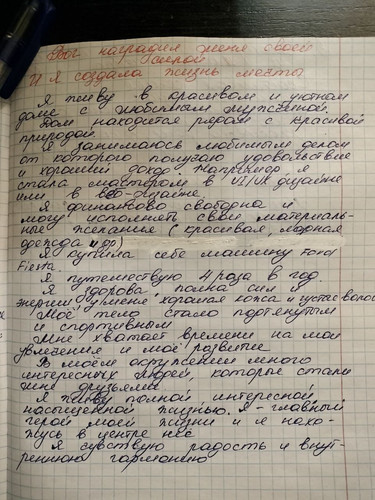 Бог наградил меня своей
силой
И я создала жизнь мечты
Я живу в красивом и уютном
доме с любимым мужчиной.
Дом находится рядом с красивой
природой
Я занимаюсь любимым делом
от которого получаю удовольствие
и хороший доход. Например я
стала мастером в UI/UX дизайне
или в веб-дизайне
Я финансово свободна и
могу исполнять свои материаль-
ные желания (красивая, модная
одежда и др)
Я купила себе машину Ford
Fiesta.
Я путешествую 4 раза в год
Я здорова полна сил и
энергии у меня хорошая кожа и густые волосы
Моё тело стало подтянутым
и спортивным
Мне хватает времени на мои
увлечения и моё развитие
В моём окружении много
интересных людей, которые стали
мне друзьями
Я живу полной интересной,
насыщенной жизнью. Я - главный
герой моей жизни и я нахо-
жусь в центре неё
Я чувствую радость и внут-
реннюю гармонию